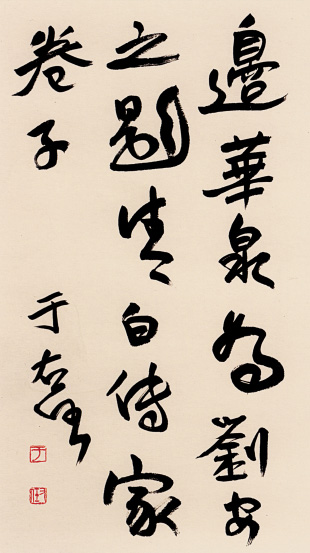 邊華泉為劉安
之題清白傳家
卷子
于右任
于